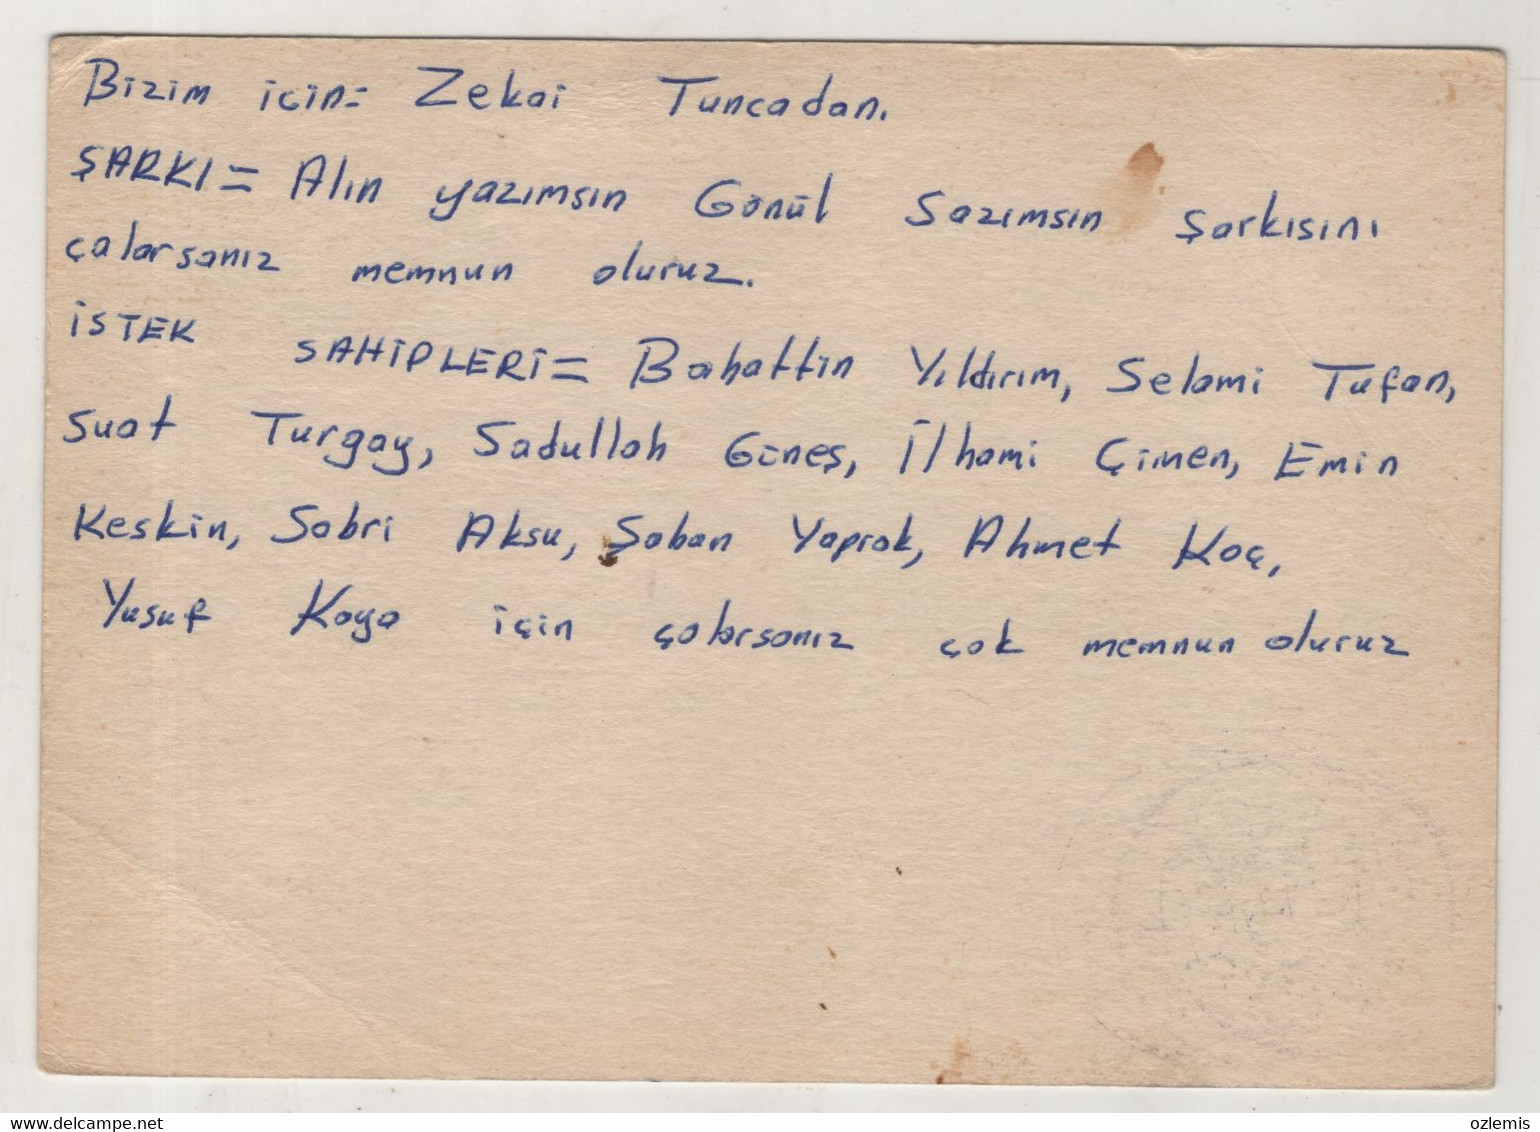 Bizim için= Zekai Tuncadan.
ŞARKI= Alın yazımsın Gönül Sazımsın Şarkısını
çalarsanız memnun oluruz.
İSTEK SAHİPLERİ= Bahattin Yıldırım, Selami Tufan,
Suat Turgay, Sadullah Güneş, İlhami Çimen, Emin
Keskin, Sabri Aksu, Şaban Yaprak, Ahmet Koç,
Yusuf Kaya için çalarsanız çok memnun oluruz
delcampe.net
ozlemis